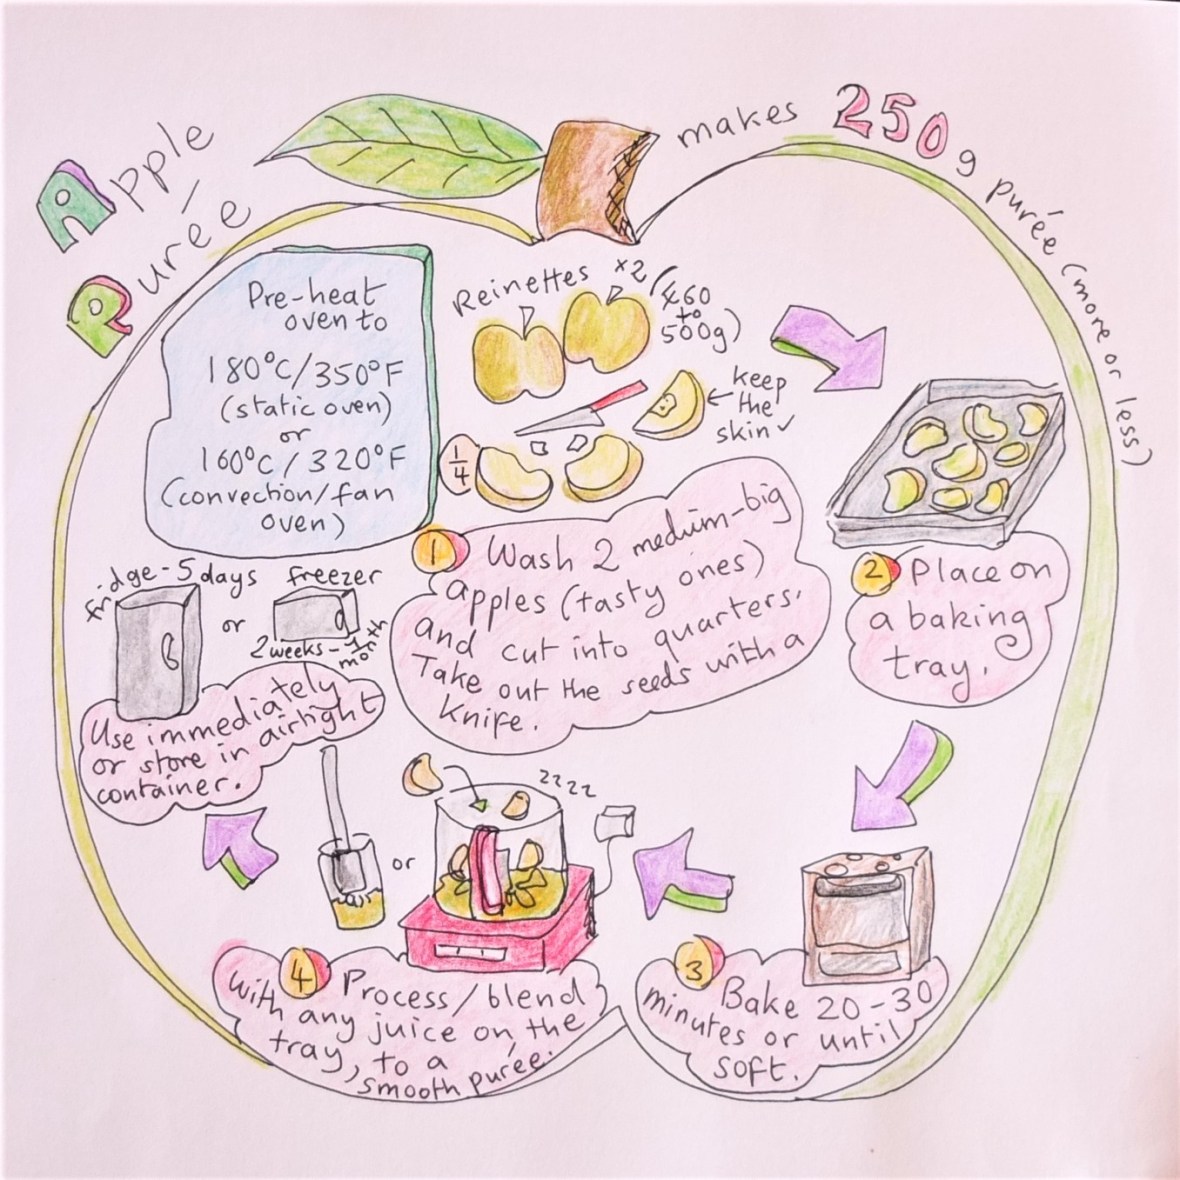 Apple
Purée
makes 250g purée (more or less)
Pre-heat
oven to
180°C/350°F
(static oven)
or
160°C/320°F
(convection/fan
oven)
Reinettes x2 (460
to
500g)
keep
the
skin ✓
1/4
1 Wash 2 medium-big
apples (tasty ones)
and cut into quarters.
Take out the seeds with a
knife.
2 Place on
a baking
tray.
3 Bake 20-30
minutes or until
soft.
zzzz
or
4 Process/blend
with any juice on the
tray, to a
smooth purée.
fridge - 5 days
or
freezer
2 weeks - 1
month
Use immediately
or store in airtight
container.